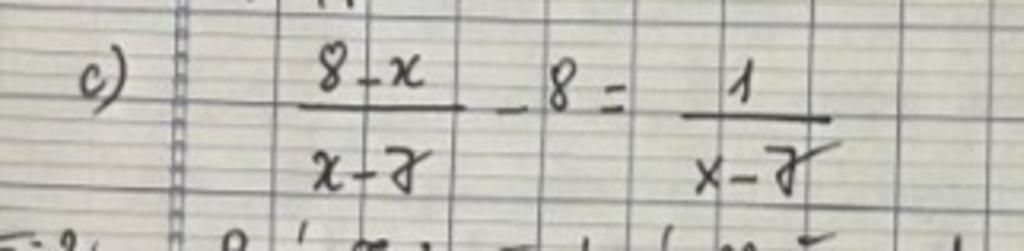 c) \frac{8-x}{x-7} - 8 = \frac{1}{x-7}